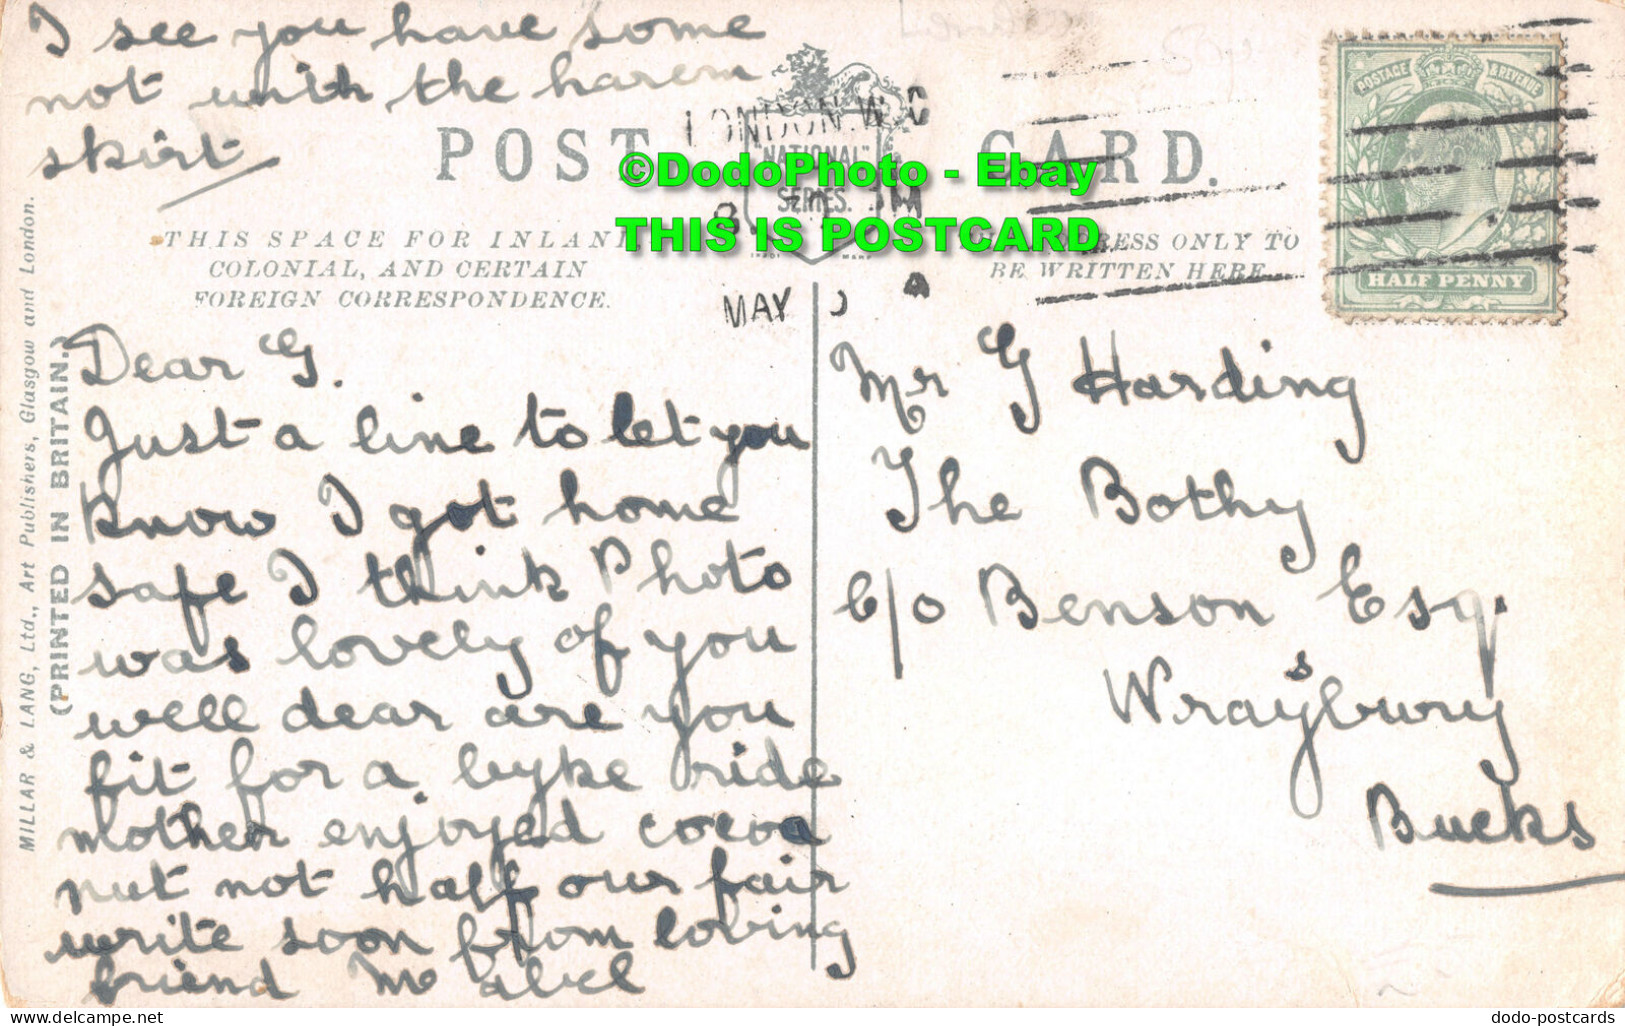 I see you have some
not with the harem
skirt
POST CARD.
LONDON.W.C
"NATIONAL"
SERIES.
MAY
POSTAGE & REVENUE
HALF PENNY
©DodoPhoto - Ebay
THIS IS POSTCARD
THIS SPACE FOR INLAND
COLONIAL, AND CERTAIN
FOREIGN CORRESPONDENCE.
ADDRESS ONLY TO
BE WRITTEN HERE
MILLAR & LANG, Ltd., Art Publishers, Glasgow and London.
(PRINTED IN BRITAIN.)
Dear G.
Just a line to let you
know I got home
safe I think Photo
was lovely of you
well dear are you
fit for a byke ride
mother enjoyed cocoa
nut not half our fair
write soon from loving
friend Mabel
Mr G Harding
The Bothy
C/o Benson Esq.
Wraysbury
Bucks
dodo-postcards
delcampe.net